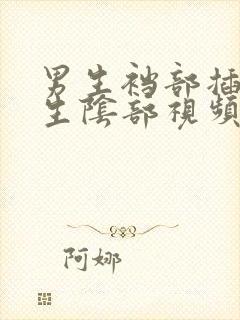 男生裆部插
生陰部視頻
阿娜